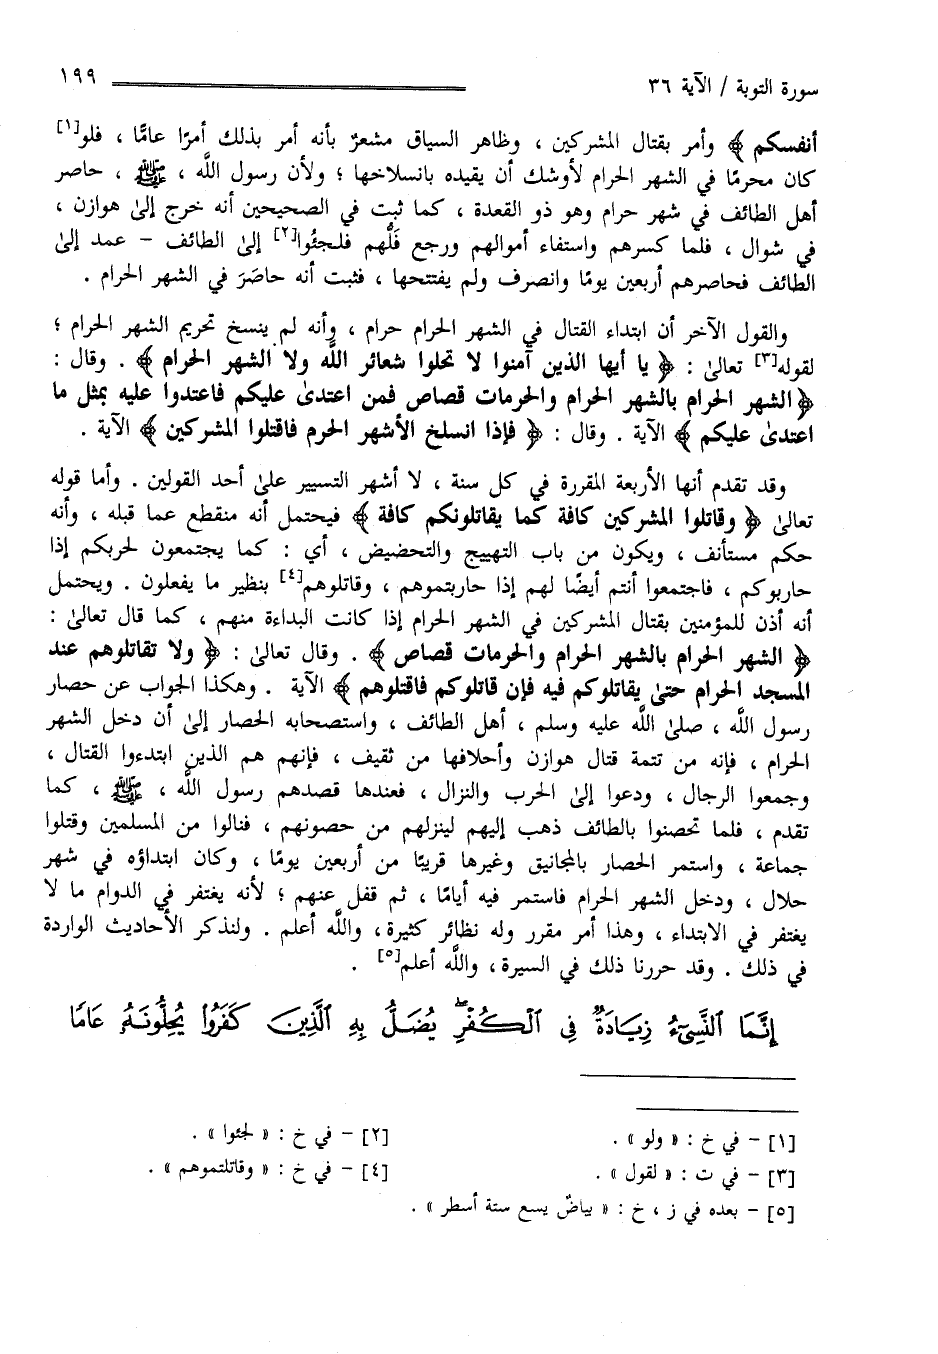 سورة التوبة / الآية ٣٦ ١٩٩
أنفسكم ﴾ وأمر بقتال المشركين ، وظاهر السياق مشعرٌ بأنه أمر بذلك أمرًا عامًّا ، فلو[١]
كان محرمًا في الشهر الحرام لأوشك أن يقيده بانسلاخها ؛ ولأن رسول اللَّه ، ﷺ ، حاصر
أهل الطائف في شهر حرام وهو ذو القعدة ، كما ثبت في الصحيحين أنه خرج إلىٰ هوازن ،
في شوال ، فلما كسرهم واستفاء أموالهم ورجع فَلُّهم فلجئُوا[٢] إلىٰ الطائف – عمد إلىٰ
الطائف فحاصرهم أربعين يومًا وانصرف ولم يفتتحها ، فثبت أنه حاصَرَ في الشهر الحرام .
والقول الآخر أن ابتداء القتال في الشهر الحرام حرام ، وأنه لم ينسخ تحريم الشهر الحرام ؛
لقوله[٣] تعالىٰ : ﴿ يا أيها الذين آمنوا لا تحلوا شعائر اللَّه ولا الشهر الحرام ﴾ . وقال :
﴿ الشهر الحرام بالشهر الحرام والحرمات قصاص فمن اعتدىٰ عليكم فاعتدوا عليه بمثل ما
اعتدىٰ عليكم ﴾ الآية . وقال : ﴿ فإذا انسلخ الأشهر الحرم فاقتلوا المشركين ﴾ الآية .
وقد تقدم أنها الأربعة المقررة في كل سنة ، لا أشهر التسيير علىٰ أحد القولين . وأما قوله
تعالىٰ ﴿ وقاتلوا المشركين كافة كما يقاتلونكم كافة ﴾ فيحتمل أنه منقطع عما قبله ، وأنه
حكم مستأنف ، ويكون من باب التهييج والتحضيض ، أي : كما يجتمعون لحربكم إذا
حاربوكم ، فاجتمعوا أنتم أيضًا لهم إذا حاربتموهم ، وقاتلوهم[٤] بنظير ما يفعلون . ويحتمل
أنه أذن للمؤمنين بقتال المشركين في الشهر الحرام إذا كانت البداءة منهم ، كما قال تعالىٰ :
﴿ الشهر الحرام بالشهر الحرام والحرمات قصاص ﴾ . وقال تعالىٰ : ﴿ ولا تقاتلوهم عند
المسجد الحرام حتىٰ يقاتلوكم فيه فإن قاتلوكم فاقتلوهم ﴾ الآية . وهكذا الجواب عن حصار
رسول اللَّه ، صلىٰ اللَّه عليه وسلم ، أهل الطائف ، واستصحابه الحصار إلىٰ أن دخل الشهر
الحرام ، فإنه من تتمة قتال هوازن وأحلافها من ثقيف ، فإنهم هم الذين ابتدءوا القتال ،
وجمعوا الرجال ، ودعوا إلىٰ الحرب والنزال ، فعندها قصدهم رسول اللَّه ، ﷺ ، كما
تقدم ، فلما تحصنوا بالطائف ذهب إليهم لينزلهم من حصونهم ، فنالوا من المسلمين وقتلوا
جماعة ، واستمر الحصار بالمجانيق وغيرها قريبًا من أربعين يومًا ، وكان ابتداؤه في شهر
حلال ، ودخل الشهر الحرام فاستمر فيه أيامًا ، ثم قفل عنهم ؛ لأنه يغتفر في الدوام ما لا
يغتفر في الابتداء ، وهذا أمر مقرر وله نظائر كثيرة ، واللَّه أعلم . ولنذكر الأحاديث الواردة
في ذلك . وقد حررنا ذلك في السيرة ، واللَّه أعلم[٥] .
إِنَّمَا ٱلنَّسِىٓءُ زِيَادَةٌ فِى ٱلْكُفْرِ ۖ يُضَلُّ بِهِ ٱلَّذِينَ كَفَرُوا۟ يُحِلُّونَهُۥ عَامًا
[١] – في خ : « ولو » . [٢] – في خ : « لجئوا » .
[٣] – في ت : « لقول » . [٤] – في خ : « وقاتلتموهم » .
[٥] – بعده في ز ، خ : « بياضٌ يسع ستة أسطر » .